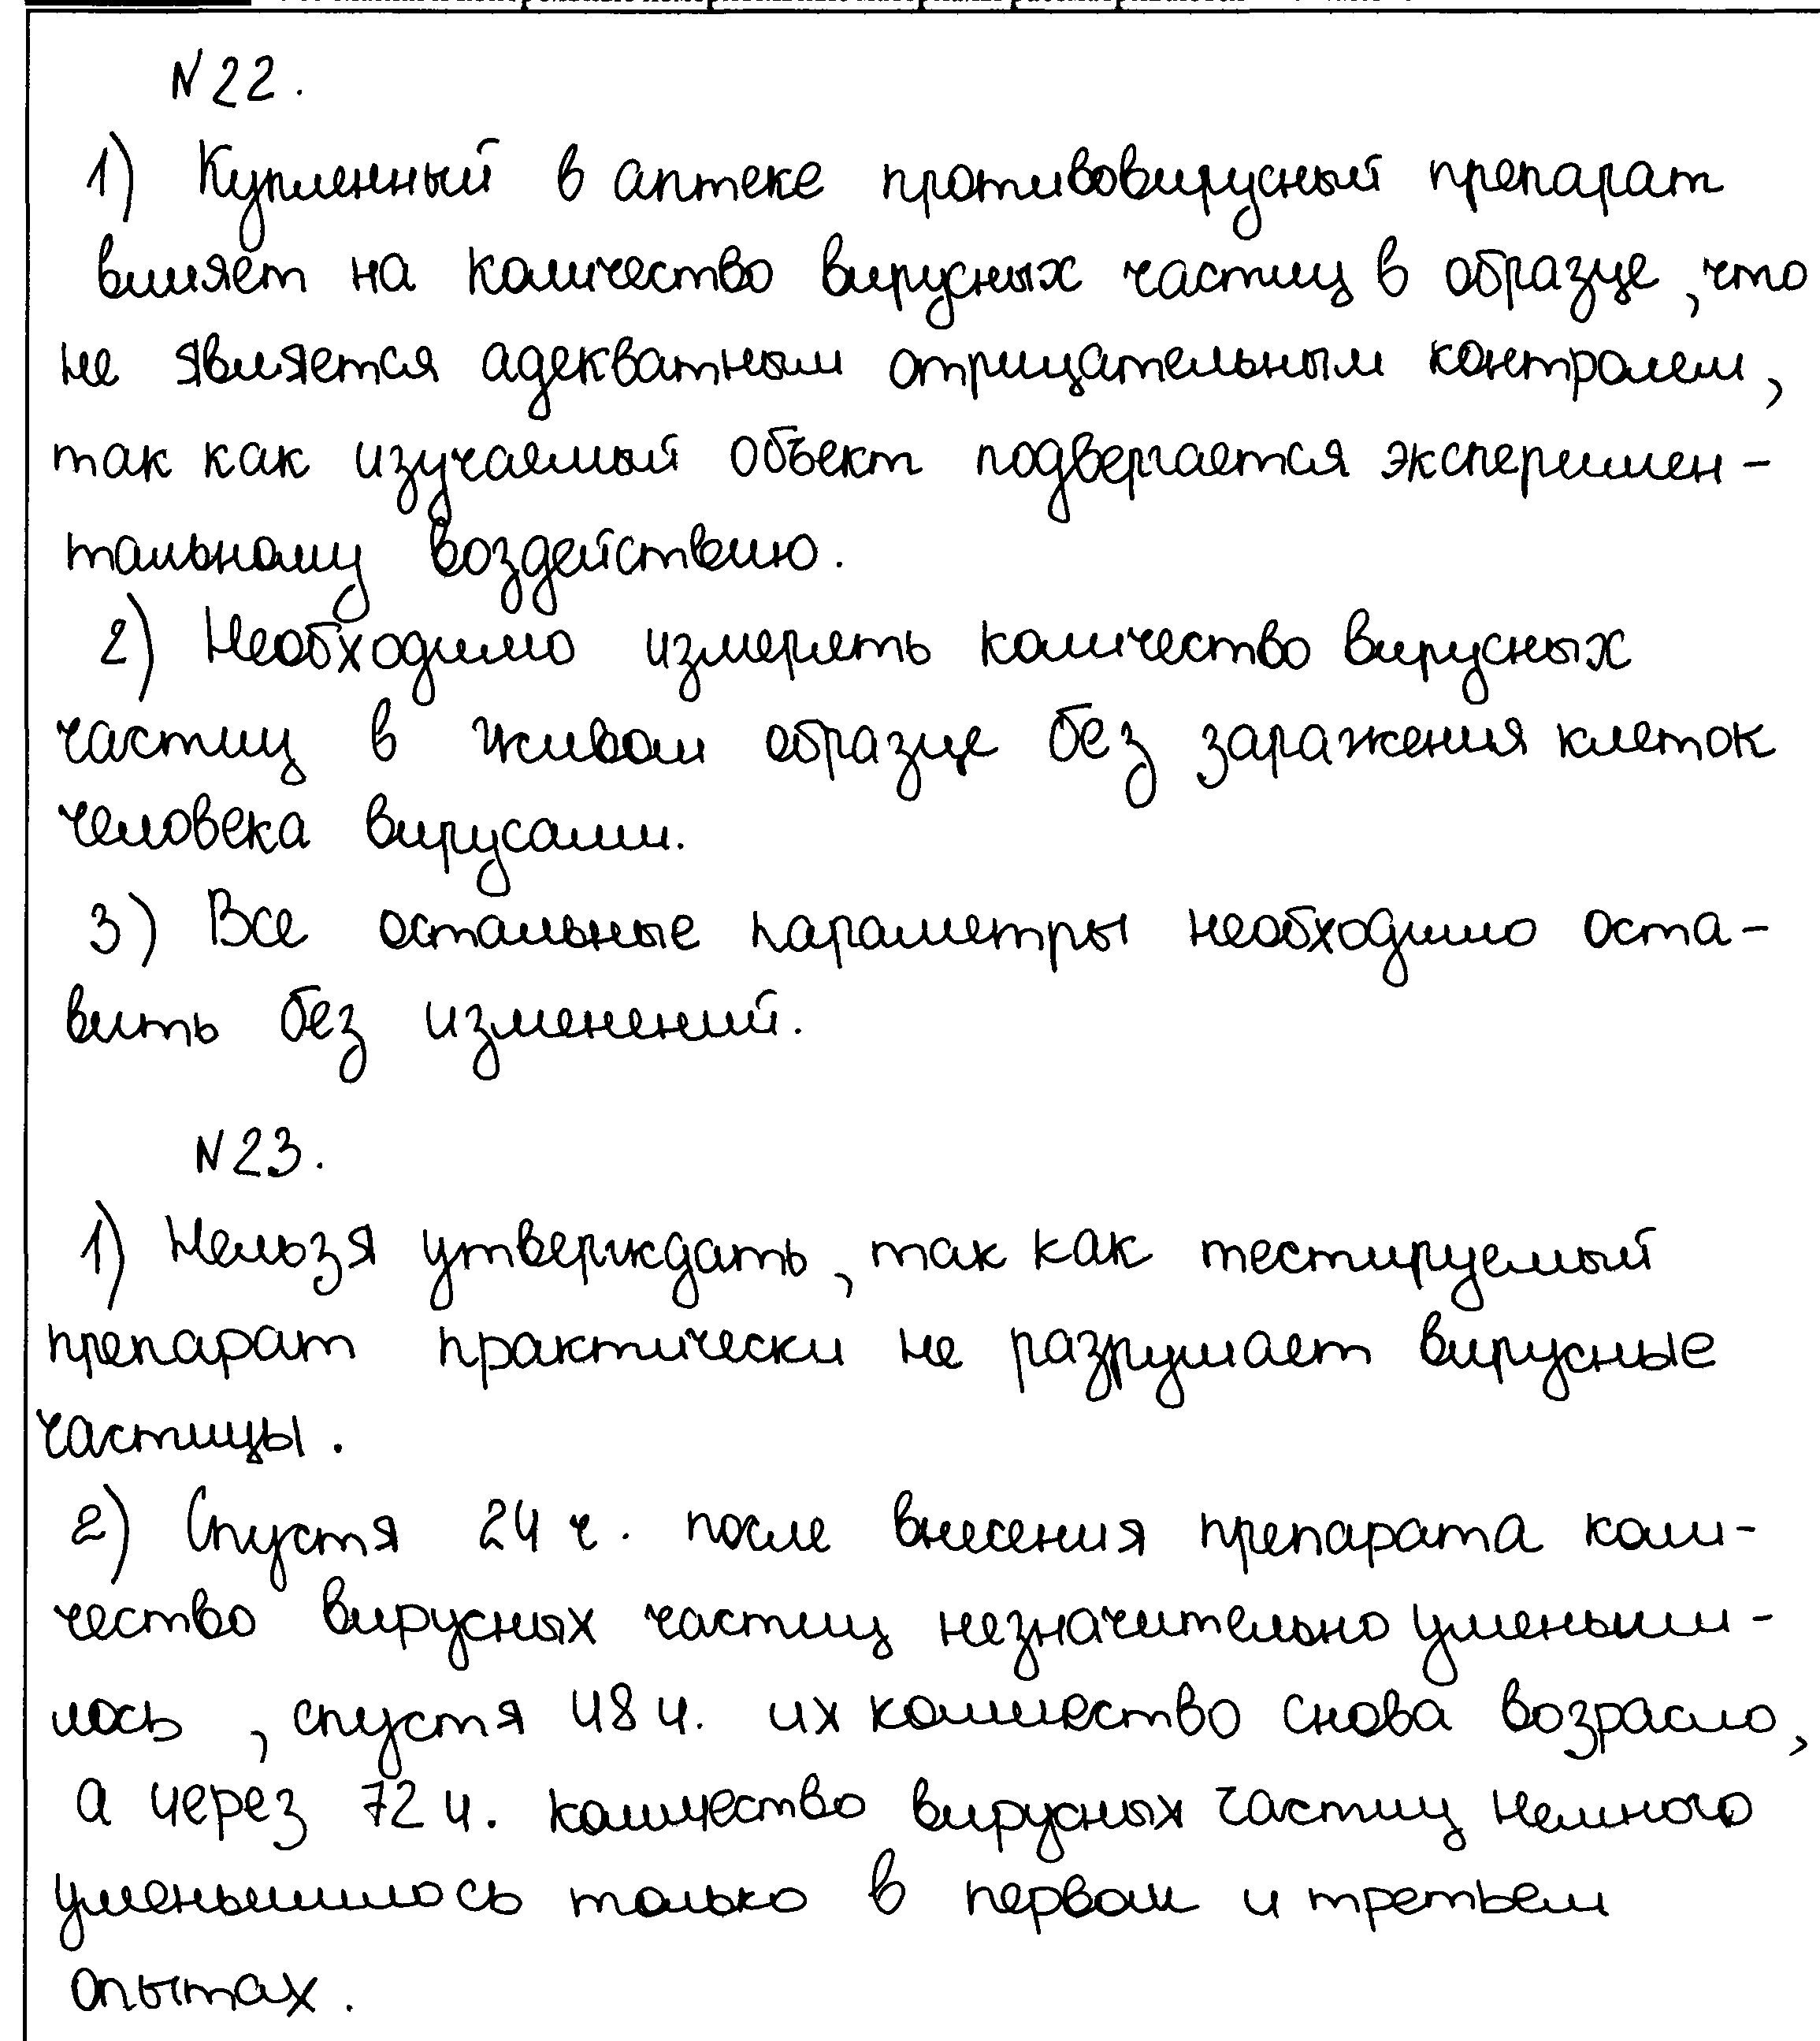 N22.
1) Купленный в аптеке противовирусный препарат
влияет на количество вирусных частиц в образце, что
не является адекватным отрицательным контролем,
так как изучаемый объект подвергается эксперимен-
тальному воздействию.
2) Необходимо измерять количество вирусных
частиц в живом образце без заражения клеток
человека вирусами.
3) Все остальные параметры необходимо оста-
вить без изменений.
N23.
1) Нельзя утверждать, так как тестируемый
препарат практически не разрушает вирусные
частицы.
2) Спустя 24 ч. после внесения препарата коли-
чество вирусных частиц незначительно уменьши-
лось, спустя 48 ч. их количество снова возрасло,
а через 72 ч. количество вирусных частиц немного
уменьшилось только в первом и третьем
опытах.